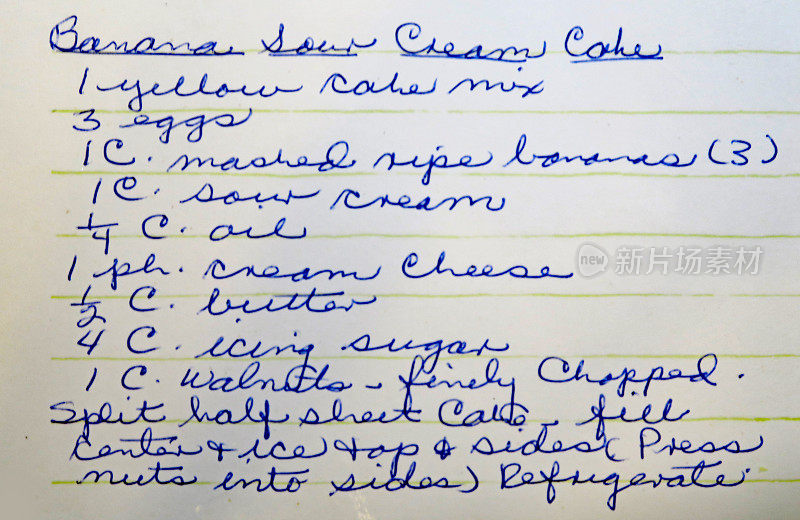 Banana Sour Cream Cake
1 yellow cake mix
3 eggs
1 C. mashed ripe bananas (3)
1 C. sour cream
1/4 C. oil
1 pk. cream cheese
new 新片场素材
1/2 C. butter
4 C. icing sugar
1 C. Walnuts - finely Chopped.
Split half sheet Cake - fill
center & ice top & sides (Press
nuts into sides) Refrigerate.